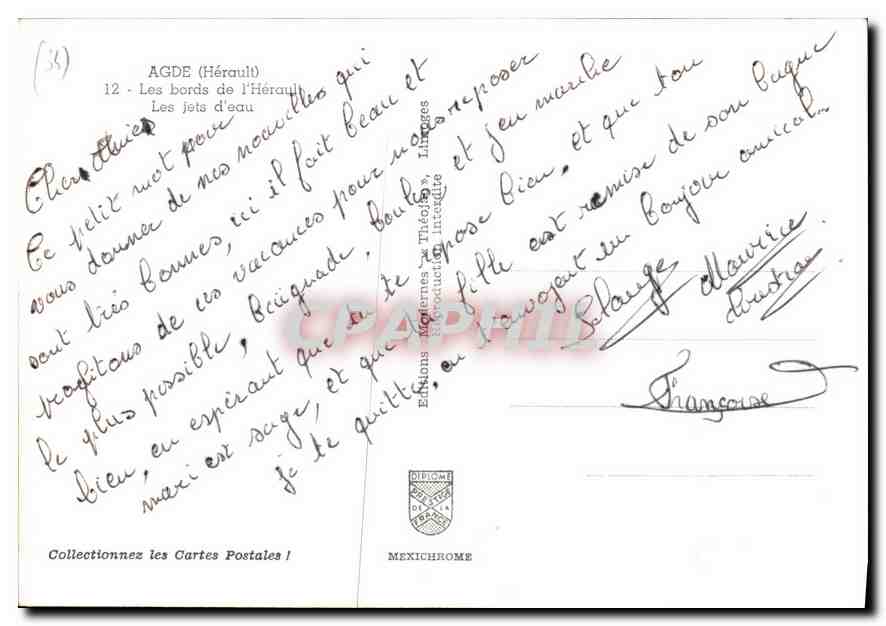 (34)
AGDE (Hérault)
12 - Les bords de l'Hérault
Les jets d'eau
Chers Amies
Ce petit mot pour
vous donner de nos nouvelles qui
sont très bonnes, ici il fait beau et
profitons de ces vacances pour nous reposer
le plus possible, baignade, boules, et jeu marche
bien, en espérant que tu te repose bien, et que ton
mari est sage, et que ta fille est remise de son
je te quitte, en t'envoyant un bonjour amical...
Solange Maurice
Christian
Françoise
Editions Modernes « Théojac », Limoges
Reproduction interdite
CPAPHIL
DIPLOME
PRESTIGE
DE LA
FRANCE
Collectionnez les Cartes Postales !
MEXICHROME